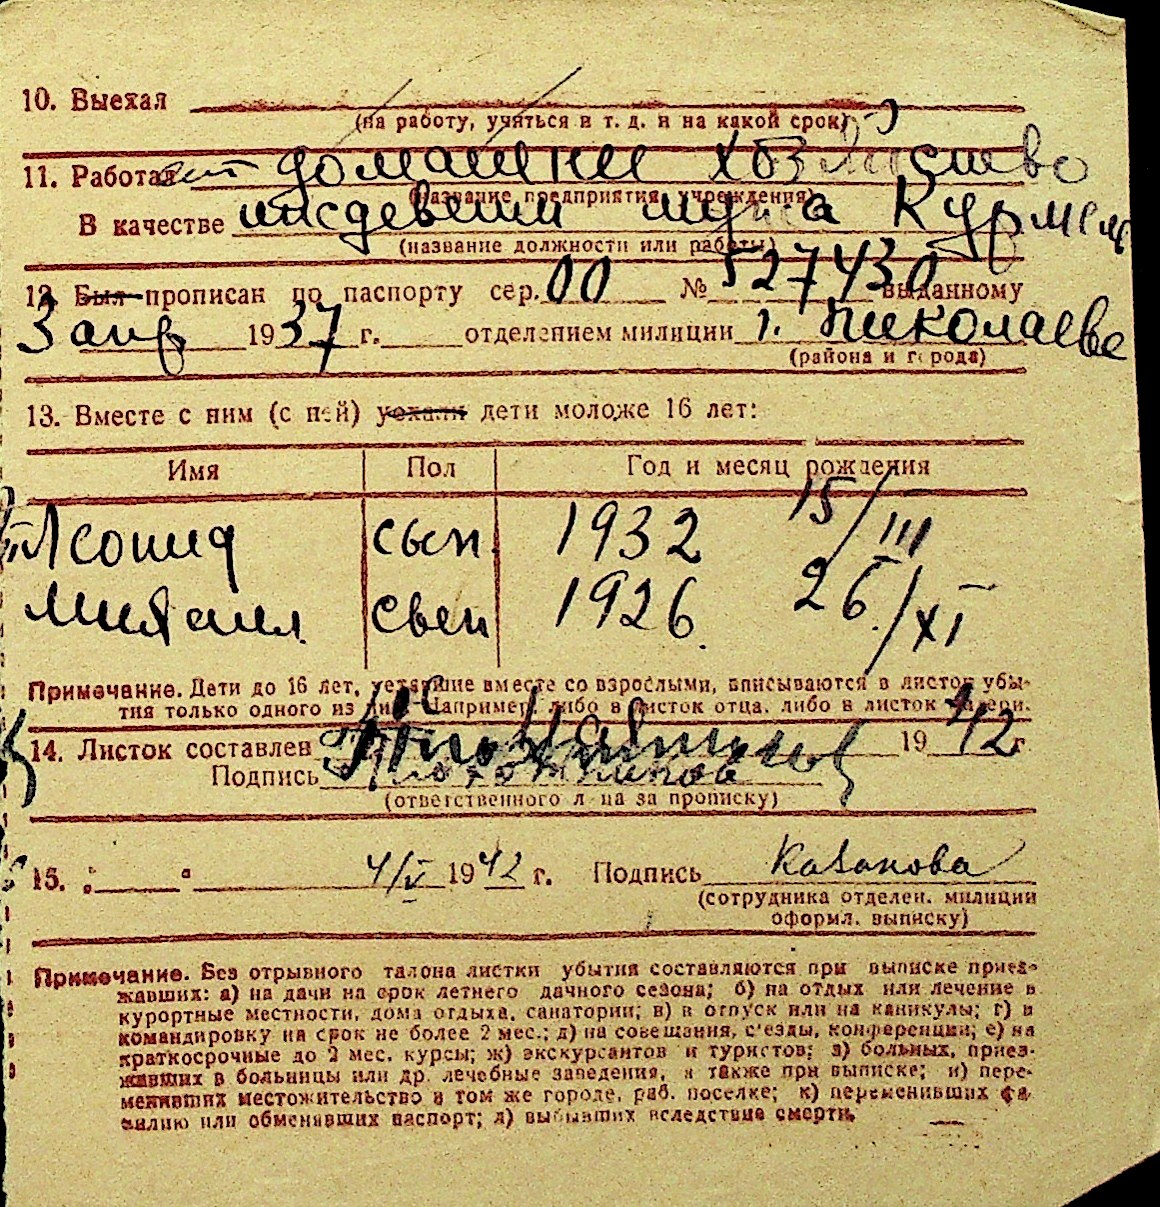 10. Выехал
(на работу, учиться и т. д. и на какой срок)
11. Работал домашнее хозяйство
(название предприятия, учреждения)
В качестве иждевении мужа
(название должности или работы)
12. Был прописан по паспорту сер. 00 № 527430 выданному
3 апр 1937 г. отделением милиции г. Николаеве
(района и города)
13. Вместе с ним (с ней) уехали дети моложе 16 лет:
Имя Пол Год и месяц рождения
Леонид сын 1932 15/III
Михаил сын 1926 26/XI
Примечание. Дети до 16 лет, уехавшие вместе со взрослыми, вписываются в листок убы-
тия только одного из них. Например, либо в листок отца, либо в листок матери.
14. Листок составлен 1942 г.
Подпись
(ответственного лица за прописку)
15. „ “ 4/V 1942 г. Подпись Казакова
(сотрудника отделен. милиции
оформл. выписку)
Примечание. Без отрывного талона листки убытия составляются при выписке приез-
жавших: а) на дачи на срок летнего дачного сезона; б) на отдых или лечение в
курортные местности, дома отдыха, санатории; в) в отпуск или на каникулы; г) в
командировку на срок не более 2 мес.; д) на совещания, с'езды, конференции; е) на
краткосрочные до 2 мес. курсы; ж) экскурсантов и туристов; з) больных, приез-
жавших в больницы или др. лечебные заведения, а также при выписке; и) пере-
менивших местожительство в том же городе, раб. поселке; к) переменивших фа-
милию или обменявших паспорт; л) выбывших вследствие смерти.